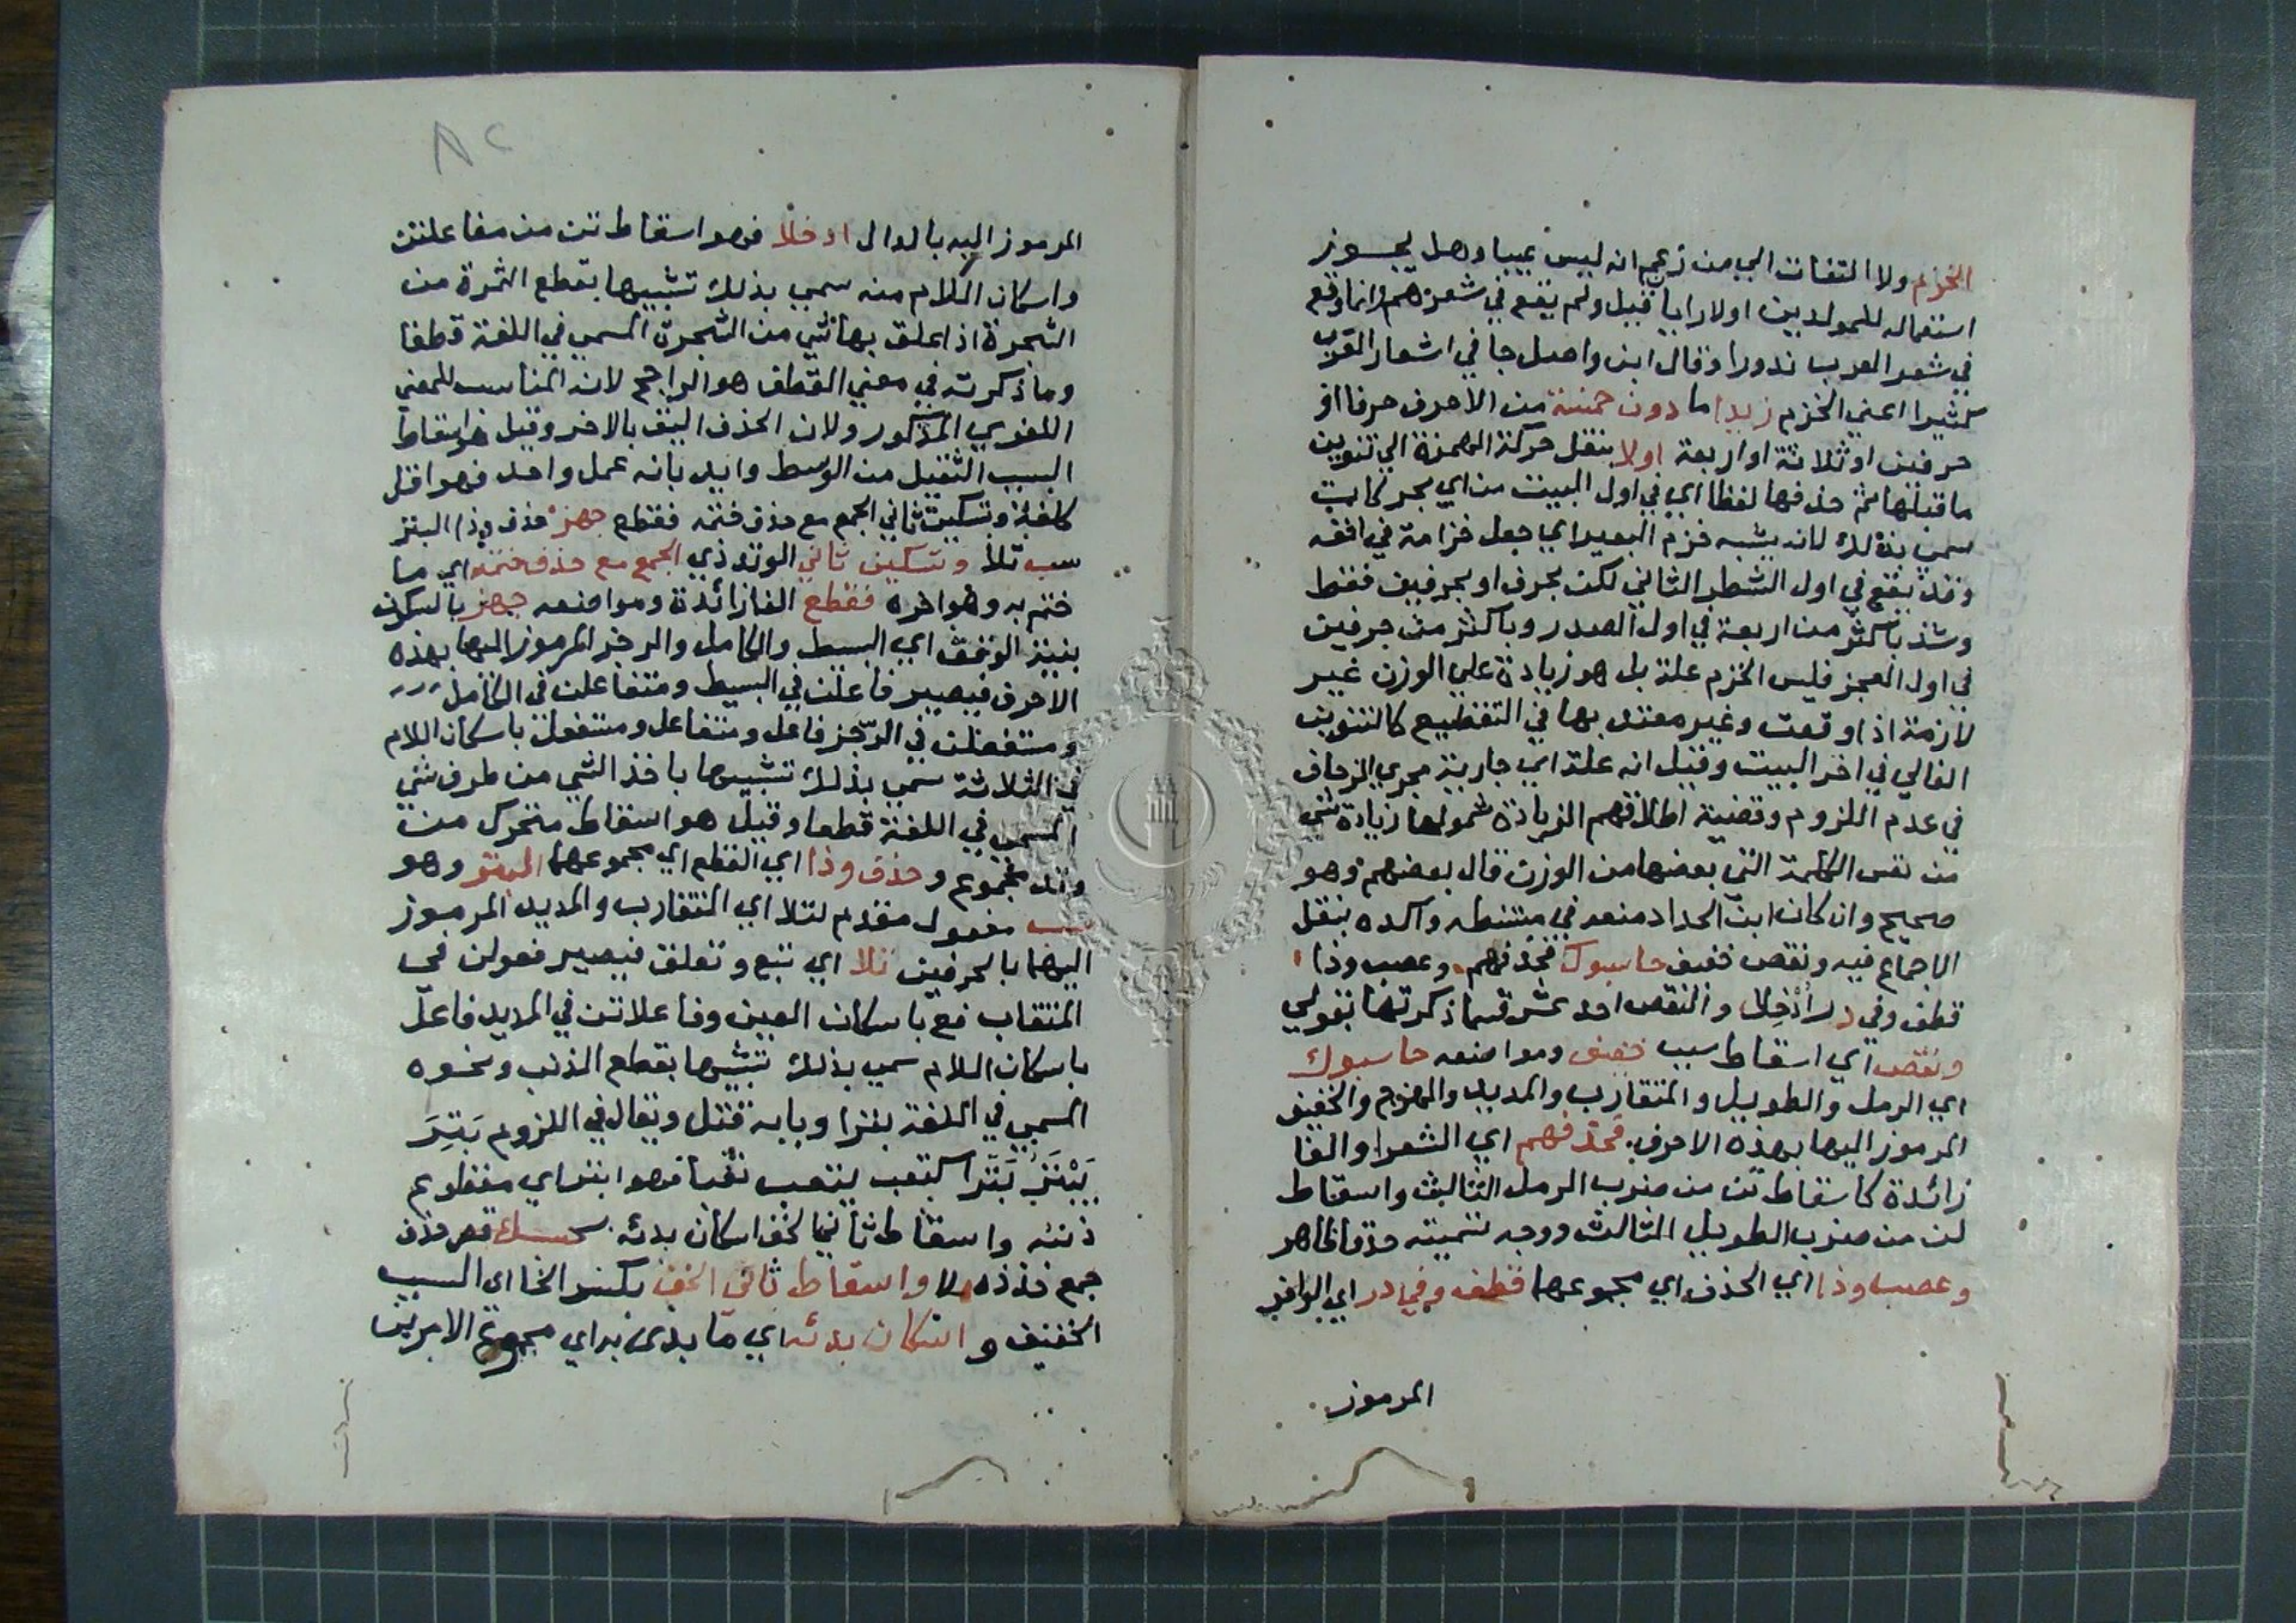 الخزم ولا التفات الي من زعم انه ليس عيبا وهل يجوز
استعماله للمولدين اولا رايا قيل ولم يقع في شعرهم وانما وقع
في شعر العرب ندورا وقال ابن واصل جا في اشعار العرب
كثيرا اعني الخزم زيد ما دون خمسة من الاحرف حرفا او
حرفين او ثلاثة او اربعة اولا بنقل حركة الهمزة الي تنوين
ما قبلها ثم حذفها لفظا اي في اول البيت من اي بحر كان
سمي بذلك لانه يشبه خزم البعير اي جعل خزامة في انفه
وقد يقع في اول الشطر الثاني لكن بحرف او بحرفين فقط
وشذ باكثر من اربعة في اول الصدر وباكثر من حرفين
في اول العجز فليس الخزم علة بل هو زيادة علي الوزن غير
لازمة اذا وقعت وغير معتد بها في التقطيع كالتنوين
الغالي في اخر البيت وقيل انه علة اي جارية مجري الزحاف
في عدم اللزوم وقضية اطلاقهم الزيادة شمولها زيادة شي
من نفس الكلمة التي بعضها من الوزن قال بعضهم وهو
صحيح وان كان ابن الحداد منعه في واكده بنقل
الاجماع فيه ونقص خفيف حاسبوك فحذفهم وعصب وذا
قطف وفي در ادخلا والنقص احد عشر قسما ذكرتها بقولي
ونقص اي اسقاط سبب خفيف ومواضعه حاسبوك
اي الرمل والطويل والمتقارب والمديد والهزج والخفيف
المرموز اليها بهذه الاحرف فحذفهم اي الشعرا والفا
زائدة كاسقاط تن من ضرب الرمل الثالث واسقاط
لن من ضرب الطويل الثالث ووجه تسميته حذفا ظاهر
وعصب وذا اي الحذف اي مجموعهما قطف وفي در اي الوافر
المرموز
المرموز اليه بالدال ادخلا فهو اسقاط تن من مفاعلتن
واسكان اللام منه سمي بذلك تشبيها بقطع الثمرة من
الشجرة اذا علق بها شي من الشجرة المسمي في اللغة قطفا
وما ذكرته في معني القطف هو الراجح لانه المناسب للمعني
اللغوي المذكور ولان الحذف اليق بالاخر وقيل هو اسقاط
السبب الثقيل من الوسط وايد بانه عمل واحد فهو اقل
كلفة وتسكين ثاني الجمع مع حذف ختمه فقطع جهز حذف وذا البتر
سب تلا وتسكين ثاني الوتد ذي الجمع مع حذف ختمه اي ما
ختم به وهو اخره فقطع الفا زائدة ومواضعه جهز بالسكون
بنية الوقف اي البسيط والكامل والرجز المرموز اليها بهذه
الاحرف فيصير فاعلن في البسيط ومتفاعلن في الكامل
ومستفعلن في الرجز فاعل ومتفاعل ومستفعل باسكان اللام
في الثلاثة سمي بذلك تشبيها باخذ الشي من طرف شي
المسمي في اللغة قطعا وقيل هو اسقاط متحرك من
وتد مجموع وحذف وذا اي القطع اي مجموعهما البتر وهو
سب مفعول مقدم لتلا اي المتقارب والمديد المرموز
اليهما بالحرفين تلا اي تبع وتعلق فيصير فعولن في
المتقارب فع باسكان العين وفاعلاتن في المديد فاعل
باسكان اللام سمي بذلك تشبيها بقطع الذنب ونحوه
المسمي في اللغة بترا وبابه قتل ويقال في اللزوم بَتِرَ
يَبْتَرُ بَتَرا كتعب يتعب تعبا فهو ابتر اي مقطوع
ذنبه واسقاط ثاني الخف اسكان بدئه كحسبك قصر حذف
جمع حذذه ولا واسقاط ثاني الخف بكسر الخا اي السبب
الخفيف و اسكان بدئه اي ما بدئ به اي مجموع الامرين